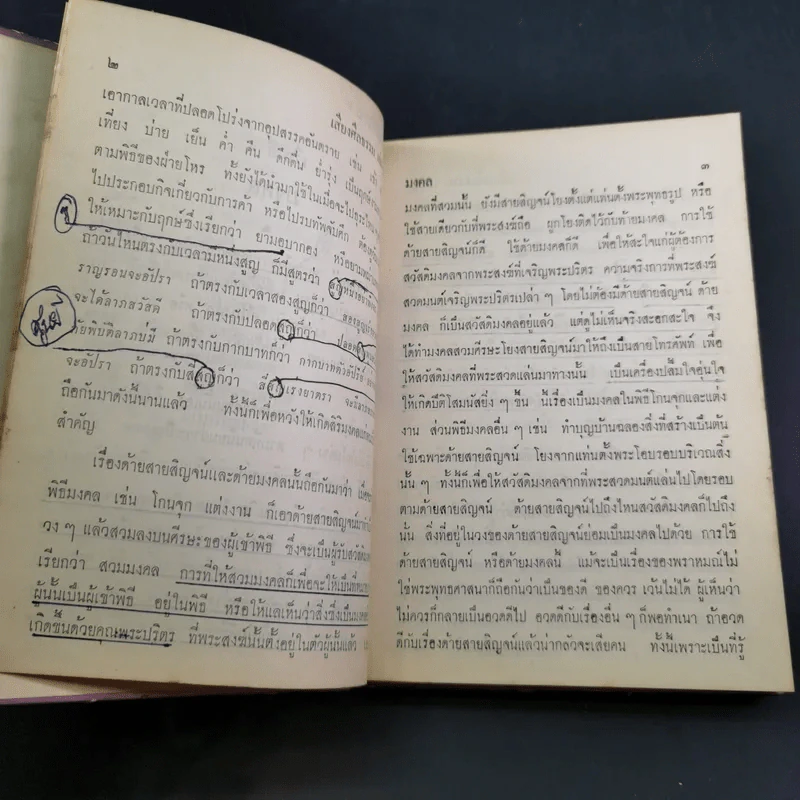 ๒
เอากาลเวลาที่ปลอดโปร่งจากอุปสรรคอันตราย เช่น
เที่ยง บ่าย เย็น ค่ำ คืน ดึกดื่น ย่ำรุ่ง เป็นฤกษ์
ตามพิธีของฝ่ายโหร ทั้งยังได้นำมาใช้ในเมื่อจะไป
ไปประกอบกิจเกี่ยวกับการค้า หรือไปรบทัพจับศึก ต้อง
ให้เหมาะกับฤกษ์ซึ่งเรียกว่า ยามอุบากอง หรือยาม
ถ้าวันไหนตรงกับเวลามีหนึ่งสูญ ก็มีสูตรว่า
ราญรอนจะอัปรา ถ้าตรงกับเวลาสองสูญก็ว่า
จะได้ลาภสวัสดี ถ้าตรงกับปลอดสูญก็ว่า ปลอด
ภัยพิบัติลาภบ่มี ถ้าตรงกับกากบาทก็ว่า กากบาทตัวอัปรีย์
จะอัปรา ถ้าตรงกับสี่สูญก็ว่า สี่สูญเรงยาตรา จะมีลาภ
ถือกันมาดังนี้นานแล้ว ทั้งนี้ก็เพื่อหวังให้เกิดสิริมงคล
สำคัญ
เรื่องด้ายสายสิญจน์และด้ายมงคลนั้นถือกันมาว่า
พิธีมงคล เช่น โกนจุก แต่งงาน ก็เอาด้ายสายสิญจน์มา
วง ๆ แล้วสวมลงบนศีรษะของผู้เข้าพิธี ซึ่งจะเป็นผู้รับสวัสดิ
เรียกว่า สวมมงคล การที่ให้สวมมงคลก็เพื่อจะให้เป็นที่
ผู้นั้นเป็นผู้เข้าพิธี อยู่ในพิธี หรือให้แลเห็นว่าสิ่งซึ่งเป็นมงคล
เกิดขึ้นด้วยคุณพระปริตร ที่พระสงฆ์นั้นตั้งอยู่ในตัวผู้นั้นแล้ว
มงคล ๓
มงคลที่สวมนั้น ยังมีสายสิญจน์โยงตั้งแต่แท่นตั้งพระพุทธรูป หรือ
ใช้สายเดียวกับที่พระสงฆ์ถือ ผูกโยงติดไว้กับท้ายมงคล การใช้
ด้ายสายสิญจน์ก็ดี ใช้ด้ายมงคลก็ดี เพื่อให้สะใจแก่ผู้ต้องการ
สวัสดิมงคลจากพระสงฆ์ที่เจริญพระปริตร ความจริงการที่พระสงฆ์
สวดมนต์เจริญพระปริตรเปล่า ๆ โดยไม่ต้องมีด้ายสายสิญจน์ ด้าย
มงคล ก็เป็นสวัสดิมงคลอยู่แล้ว แต่ดูไม่เห็นจริงสะอกสะใจ จึง
ได้ทำมงคลสวมศีรษะโยงสายสิญจน์มาให้ถึงเป็นสายโทรศัพท์ เพื่อ
ให้สวัสดิมงคลที่พระสวดแล่นมาทางนั้น เป็นเครื่องปลื้มใจอุ่นใจ
ให้เกิดปีติโสมนัสยิ่ง ๆ ขึ้น นี้เรื่องเป็นมงคลในพิธีโกนจุกและแต่ง
งาน ส่วนพิธีมงคลอื่น ๆ เช่น ทำบุญบ้านฉลองสิ่งที่สร้างเป็นต้น
ใช้เฉพาะด้ายสายสิญจน์ โยงจากแท่นตั้งพระโอบรอบบริเวณสิ่ง
นั้น ๆ ทั้งนี้ก็เพื่อให้สวัสดิมงคลจากที่พระสวดมนต์แล่นไปโดยรอบ
ตามด้ายสายสิญจน์ ด้ายสายสิญจน์ไปถึงไหนสวัสดิมงคลก็ไปถึง
นั้น สิ่งที่อยู่ในวงของด้ายสายสิญจน์ย่อมเป็นมงคลไปด้วย การใช้
ด้ายสายสิญจน์ หรือด้ายมงคลนี้ แม้จะเป็นเรื่องของพราหมณ์ไม่
ใช่พระพุทธศาสนาก็ถือกันว่าเป็นของดี ของควร เว้นไม่ได้ ผู้เห็นว่า
ไม่ควรก็กลายเป็นอวดดีไป อวดดีกับเรื่องอื่น ๆ ก็พอทำเนา ถ้าอวด
ดีกับเรื่องด้ายสายสิญจน์แล้วน่ากลัวจะเสียคน ทั้งนี้เพราะเป็นที่รู้